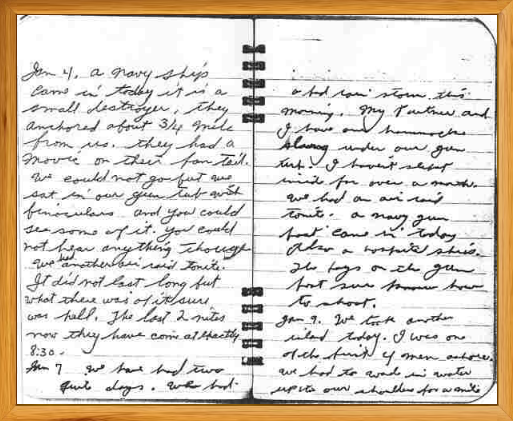 Jan 4. a navy ship
came in today it is a
small destroyer, they
anchored about 3/4 mile
from us. they had a
movie on their fan tail.
We could not go but we
sat in our gun tub with
binoculars and you could
see some of it. you could
not hear anything though
we had another air raid tonite.
It did not last long but
what there was of it sure
was hell. The last 2 nites
now they have come at exactly
8:30.
Jan 7 We have had two
days. We had
a bad rain storm this
morning. My Partner and
I have our hammocks
under our gun
tub. I havent slept
inside for over a month.
we had an air raid
tonite. a navy gun
boat came in today
Also a hospital ship.
The boys on the gun
boat sure know how
to shoot.
Jan 9. We took another
island today. I was one
of the first 4 men ashore.
we had to wade in water
up to our shoulders for a mile